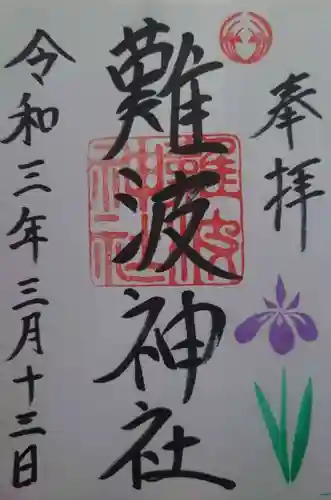 奉拝
難波神社
難波
神社
令和三年三月十三日